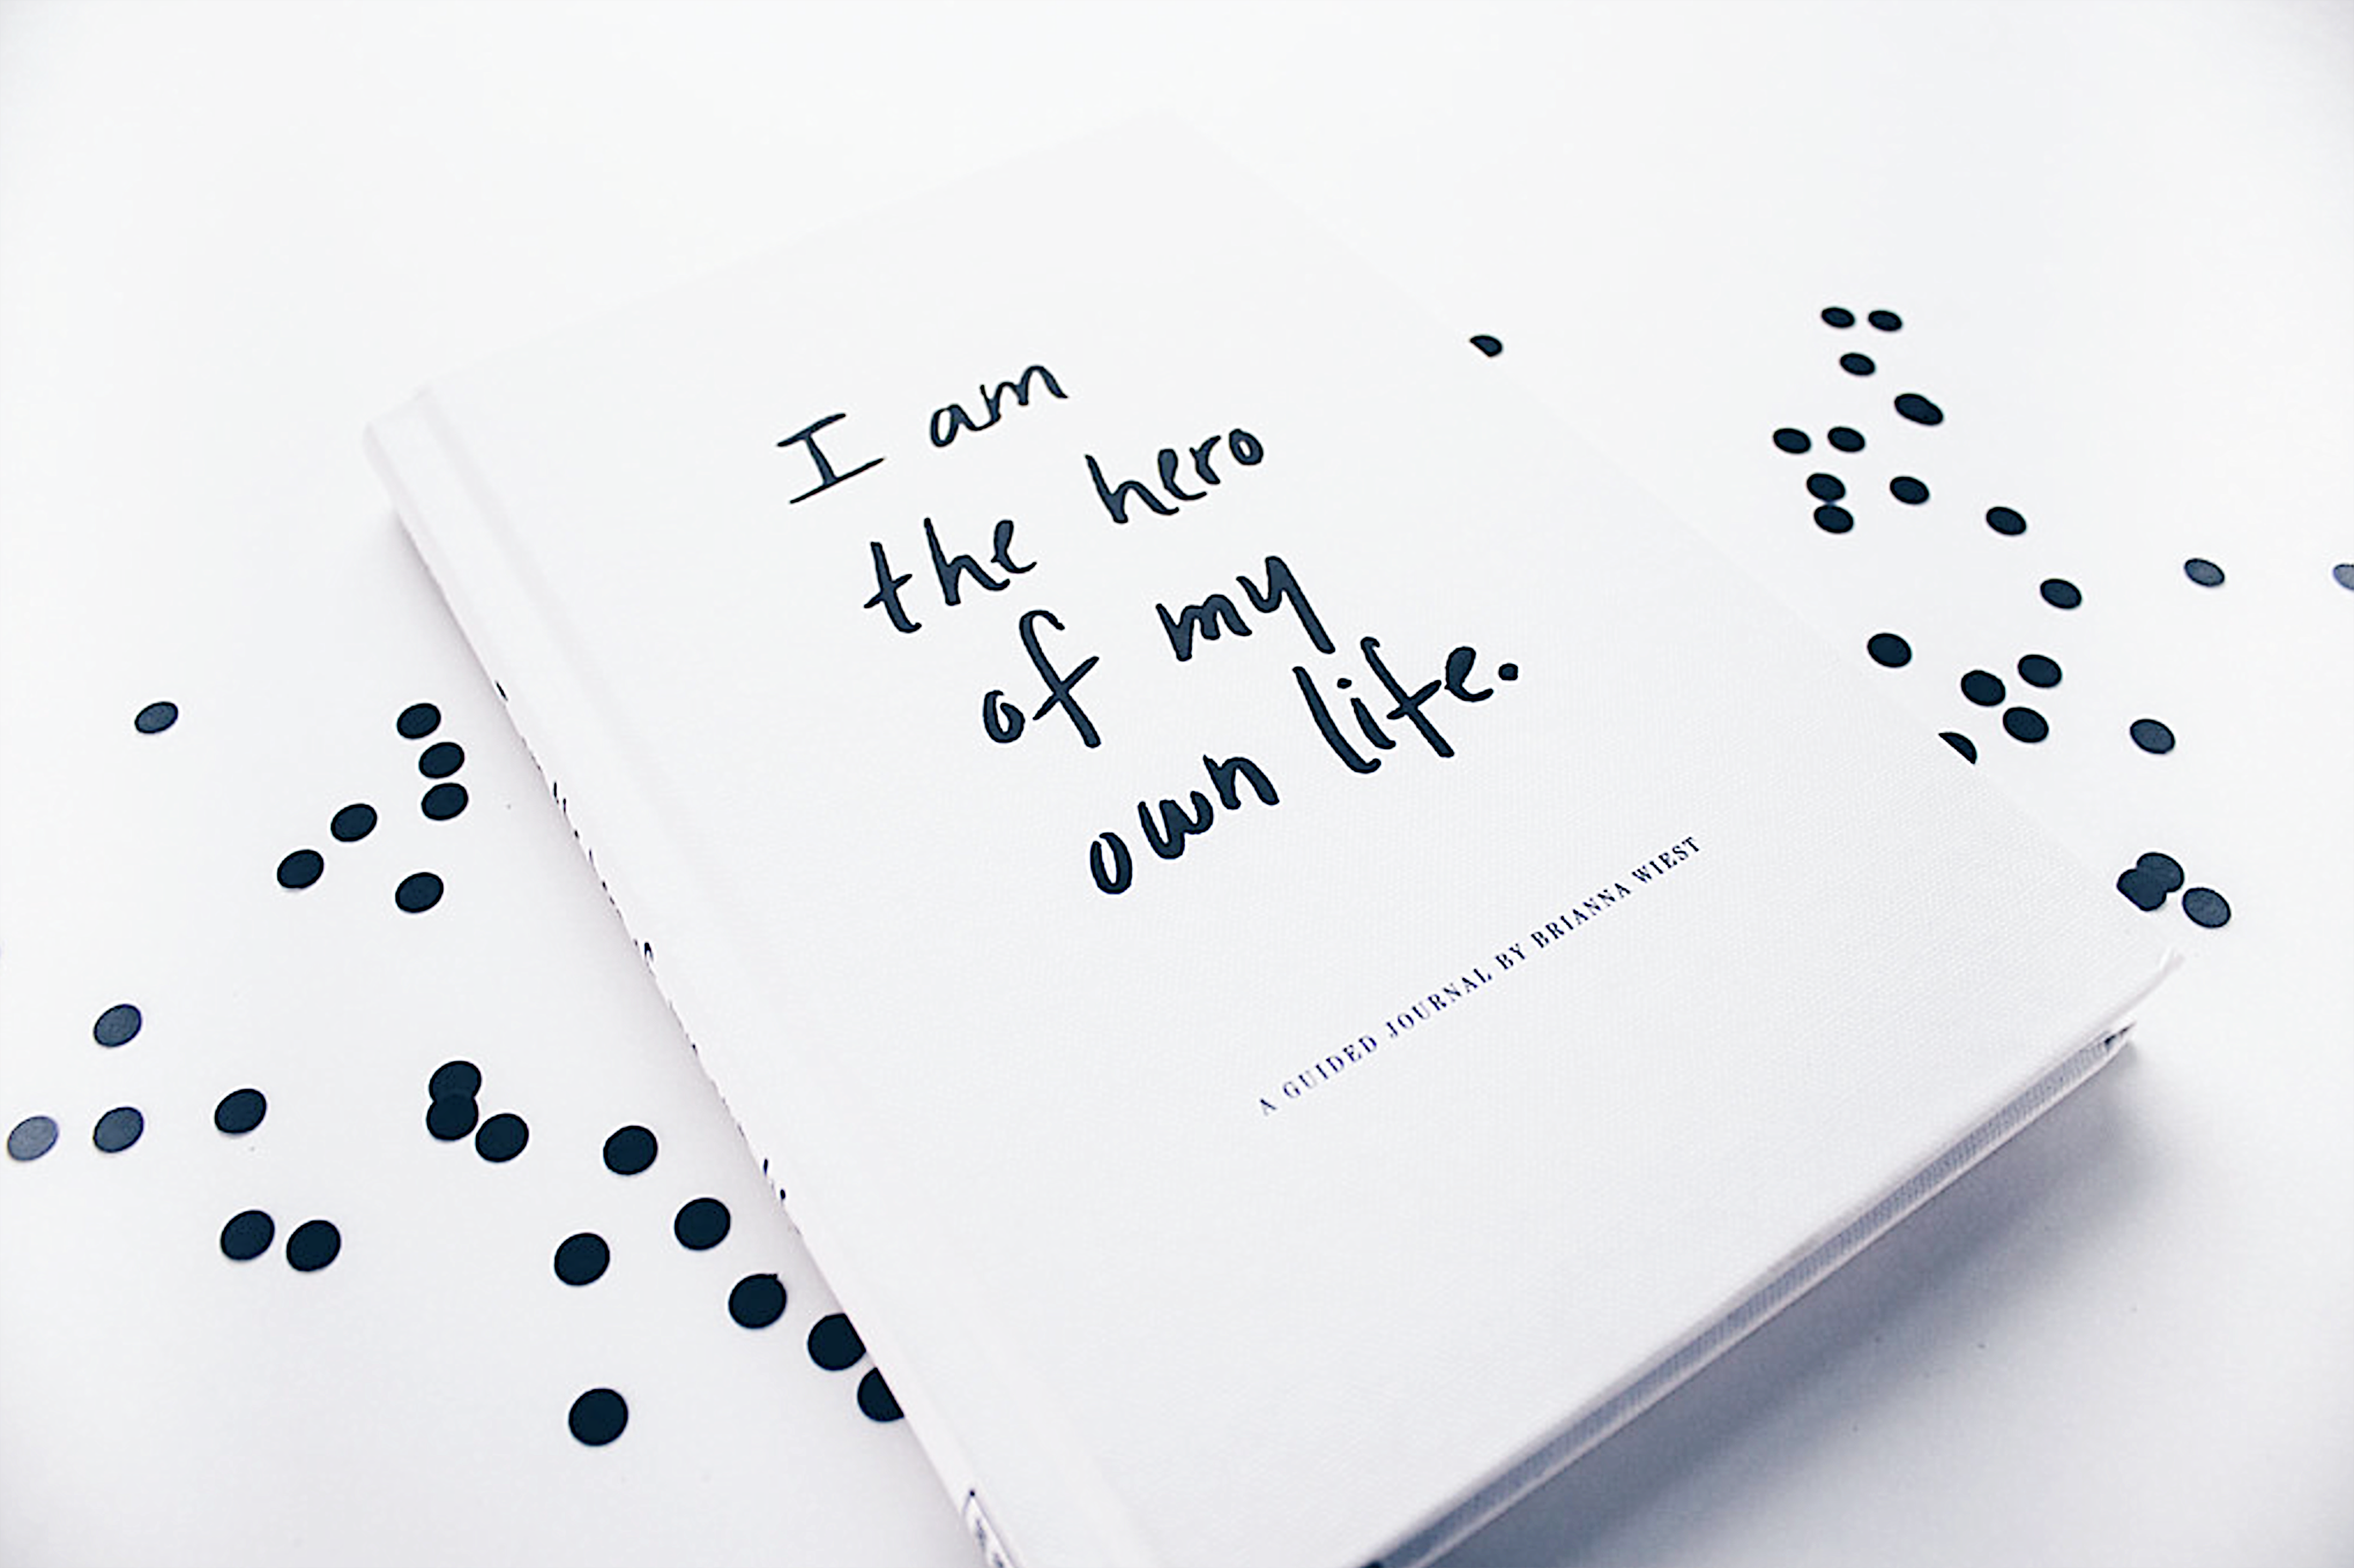 I am
the hero
of my
own life.
A GUIDED JOURNAL BY BRIANNA WIEST